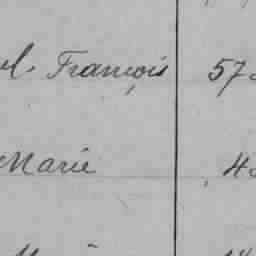 François 57
Marie 4